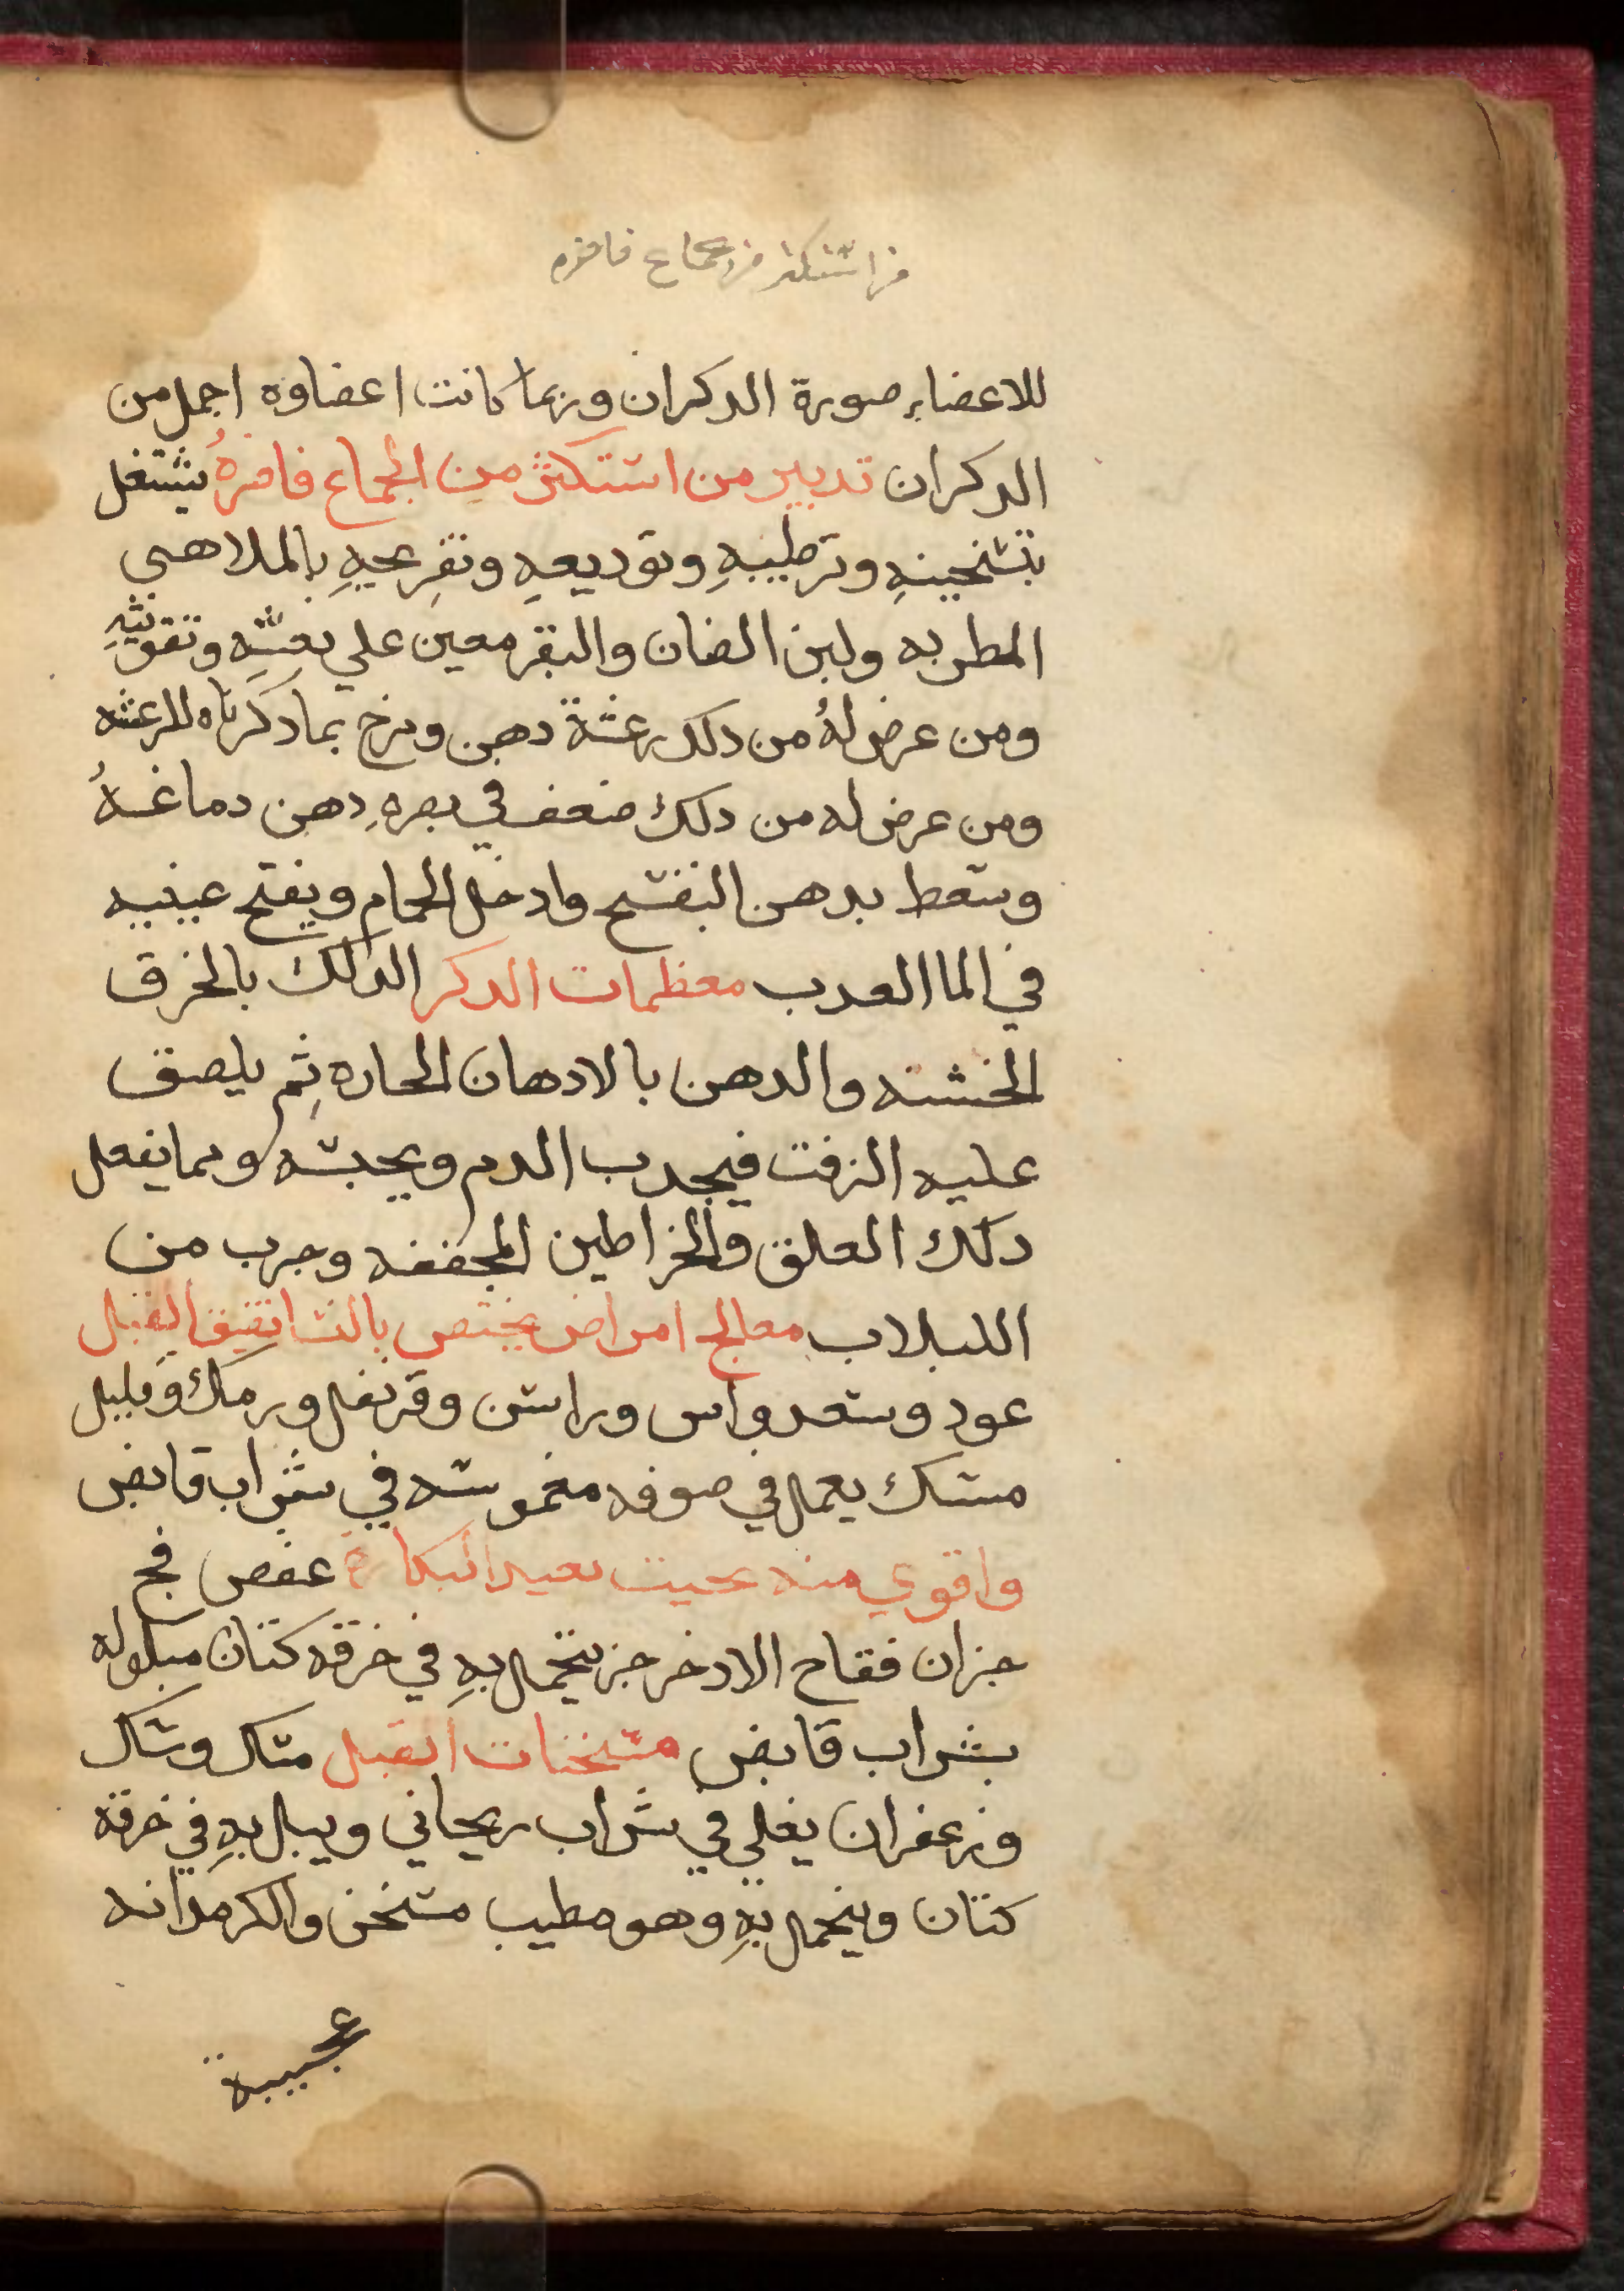 من استكثر من جماع فاضره
للاعضاءِ صورة الدكران وربما كانت اعضاوه اجمل من
الدكران تدبير من استكثر من الجماع فاضرهُ يشتغل
بتسخينهِ وترطيبهِ وتوديعهِ وتفريحهِ بالملاهي
المطربه ولبن الضان والبقر معين علي نعشهِ وتقويتهِ
ومن عرض لهُ من دلك رعشة دهن ومرخ بما دكرناه للرعشه
ومن عرض له من دلك ضعف في بصرهِ دهن دماغهُ
وسعط بدهن البنفسج وادخل الحمام ويفتح عينيه
في الما العدب معظمات الدكر الدلك بالخرق
الخشنه والدهن بالادهان الحاره ثم يلصق
عليه الزفت فيجدب الدم ويحبسه ومما يفعل
دلك العلق والخراطين المجففه وجرب من
اللبلاب معالج امراض يختص بالنسا تضيق القبل
عود وسعد واس وراسن وقرنفل ورمك وقليل
مسك يعمل في صوفه مغموسه في شراب قابض
واقوي منه بحيت تعيد البكارة عفص فج
جزان فقاح الادخر جز يتحمل بهِ في خرقه كتان مبلوله
بشراب قابض مسخنات القبل مسك وسك
وزعفران يغلي في شراب ريحاني ويبل بهِ في خرقة
كتان ويتحمل بهِ وهو مطيب مسخن والكرمدانه
عجيبة